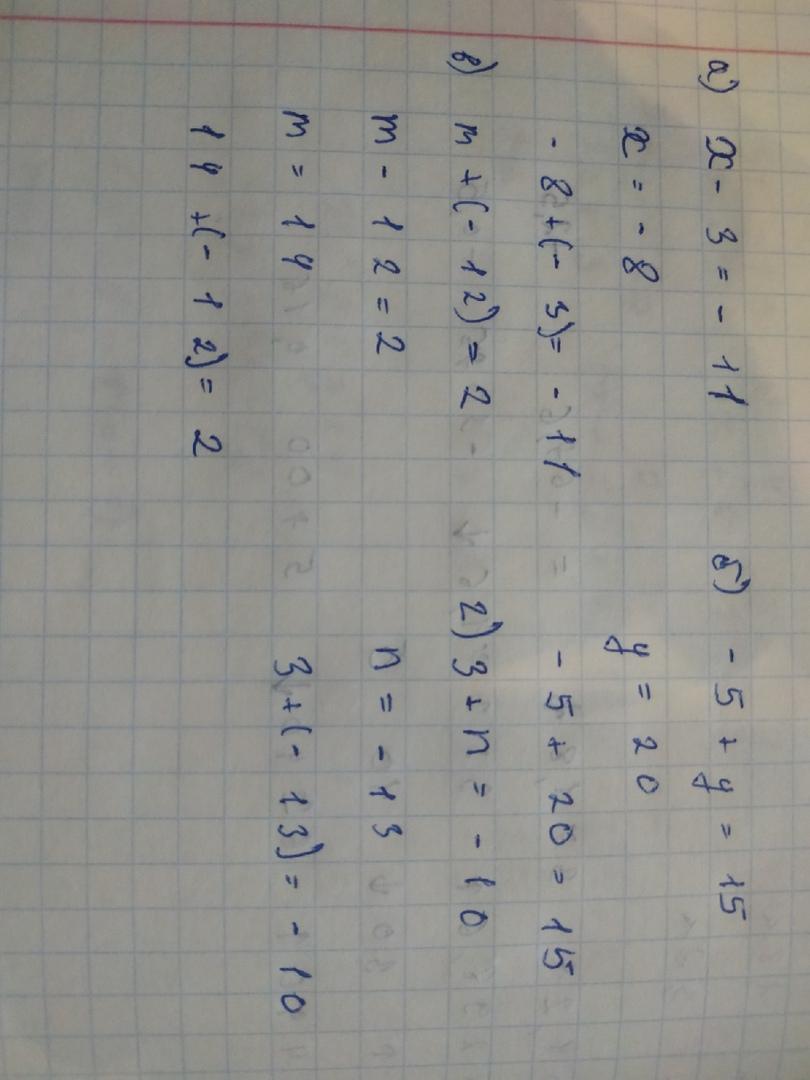 а) x - 3 = - 11
x = - 8
- 8 + (- 3) = - 11
б) - 5 + y = 15
y = 20
- 5 + 20 = 15
в) m + (- 12) = 2
m - 12 = 2
m = 14
14 + (- 12) = 2
г) 3 + n = - 10
n = - 13
3 + (- 13) = - 10